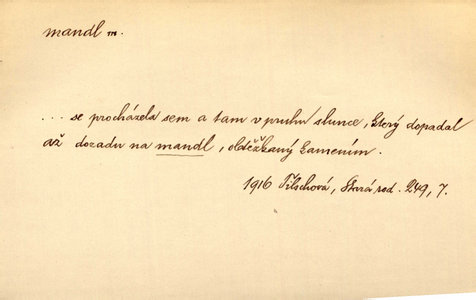 mandl m.
... se procházela sem a tam v pruhu slunce, který dopadal
až dozadu na mandl, obtěžkaný kamením.
1916 Tilschová, Stará rod. 249, 7.